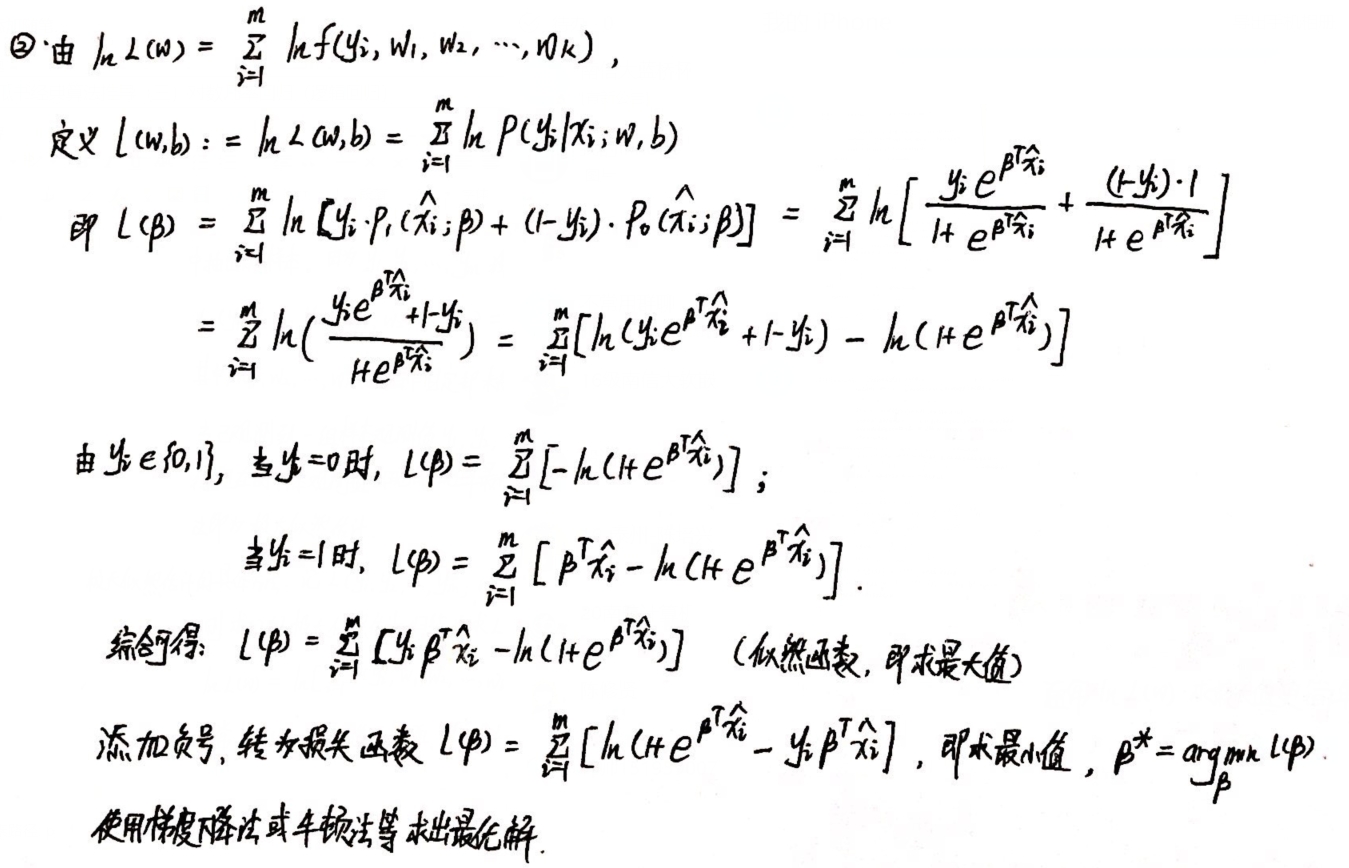 ②·由 ln L(w) = Σ_{i=1}^{m} ln f(y_i, w_1, w_2, ⋯, w_k) ,
定义 l(w,b) : = ln L(w,b) = Σ_{i=1}^{m} ln P(y_i|x_i; w, b)
即 L(β) = Σ_{i=1}^{m} ln [y_i·P_1(x̂_i; β) + (1-y_i)·P_0(x̂_i; β)] = Σ_{i=1}^{m} ln [ \frac{y_i e^{β^T x̂_i}}{1+e^{β^T x̂_i}} + \frac{(1-y_i)·1}{1+e^{β^T x̂_i}} ]
= Σ_{i=1}^{m} ln( \frac{y_i e^{β^T x̂_i}+1-y_i}{1+e^{β^T x̂_i}} ) = Σ_{i=1}^{m} [ln(y_i e^{β^T x̂_i} + 1-y_i) - ln(1+e^{β^T x̂_i})]
由 y_i ∈{0,1}, 当y_i=0时, L(β) = Σ_{i=1}^{m} [-ln(1+e^{β^T x̂_i})] ;
当y_i=1时, L(β) = Σ_{i=1}^{m} [β^T x̂_i - ln(1+e^{β^T x̂_i})] .
综合可得: L(β) = Σ_{i=1}^{m} [y_i β^T x̂_i - ln(1+e^{β^T x̂_i})] (似然函数, 即求最大值)
添加负号, 转为损失函数 L(β) = Σ_{i=1}^{m} [ln(1+e^{β^T x̂_i} - y_i β^T x̂_i] , 即求最小值 , β* = argmin_β L(β).
使用梯度下降法或牛顿法等求出最优解.